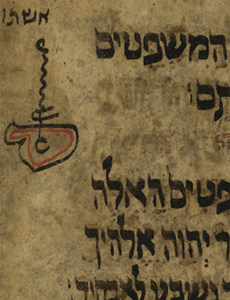 אשתו
המשפטים
תם׃
פטים האלה
ר יהוה אלהיך